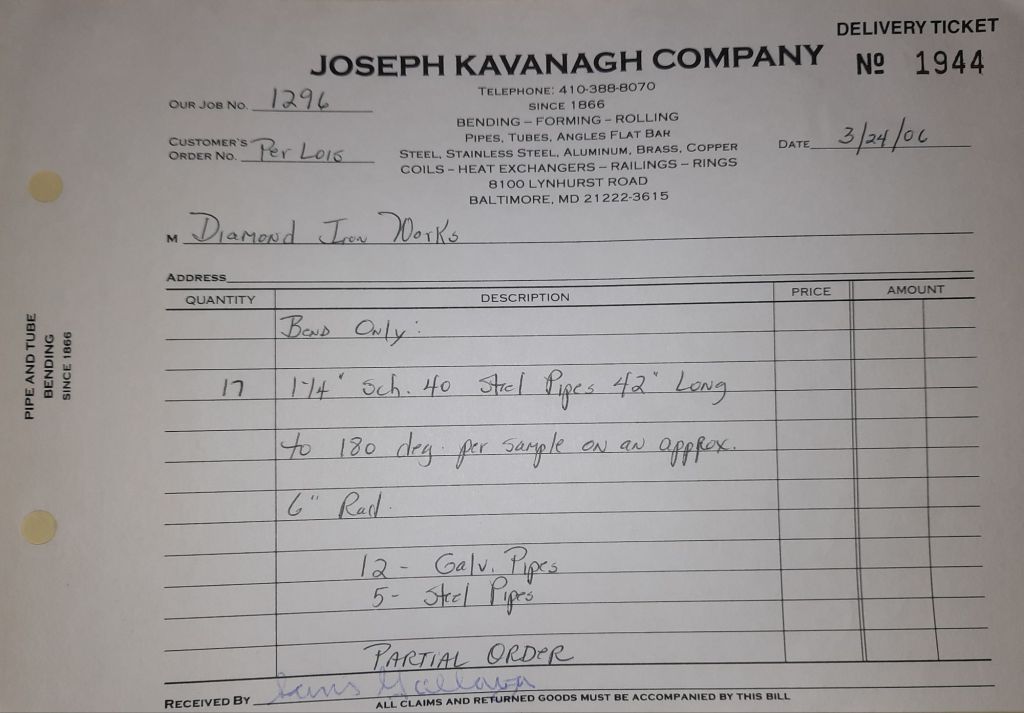 DELIVERY TICKET
JOSEPH KAVANAGH COMPANY
Nº 1944
TELEPHONE: 410-388-8070
SINCE 1866
BENDING – FORMING – ROLLING
PIPES, TUBES, ANGLES FLAT BAR
STEEL, STAINLESS STEEL, ALUMINUM, BRASS, COPPER
COILS – HEAT EXCHANGERS – RAILINGS – RINGS
8100 LYNHURST ROAD
BALTIMORE, MD 21222-3615
OUR JOB NO. 1296
CUSTOMER'S
ORDER NO. Per Lois
DATE 3/24/06
M Diamond Iron Works
ADDRESS
QUANTITY DESCRIPTION PRICE AMOUNT
Bend Only:
17 1-1/4" Sch. 40 Steel Pipes 42" Long
to 180 deg. per sample on an approx.
6" Rad.
12 - Galv. Pipes
5 - Steel Pipes
PARTIAL ORDER
RECEIVED BY
ALL CLAIMS AND RETURNED GOODS MUST BE ACCOMPANIED BY THIS BILL
PIPE AND TUBE
BENDING
SINCE 1866